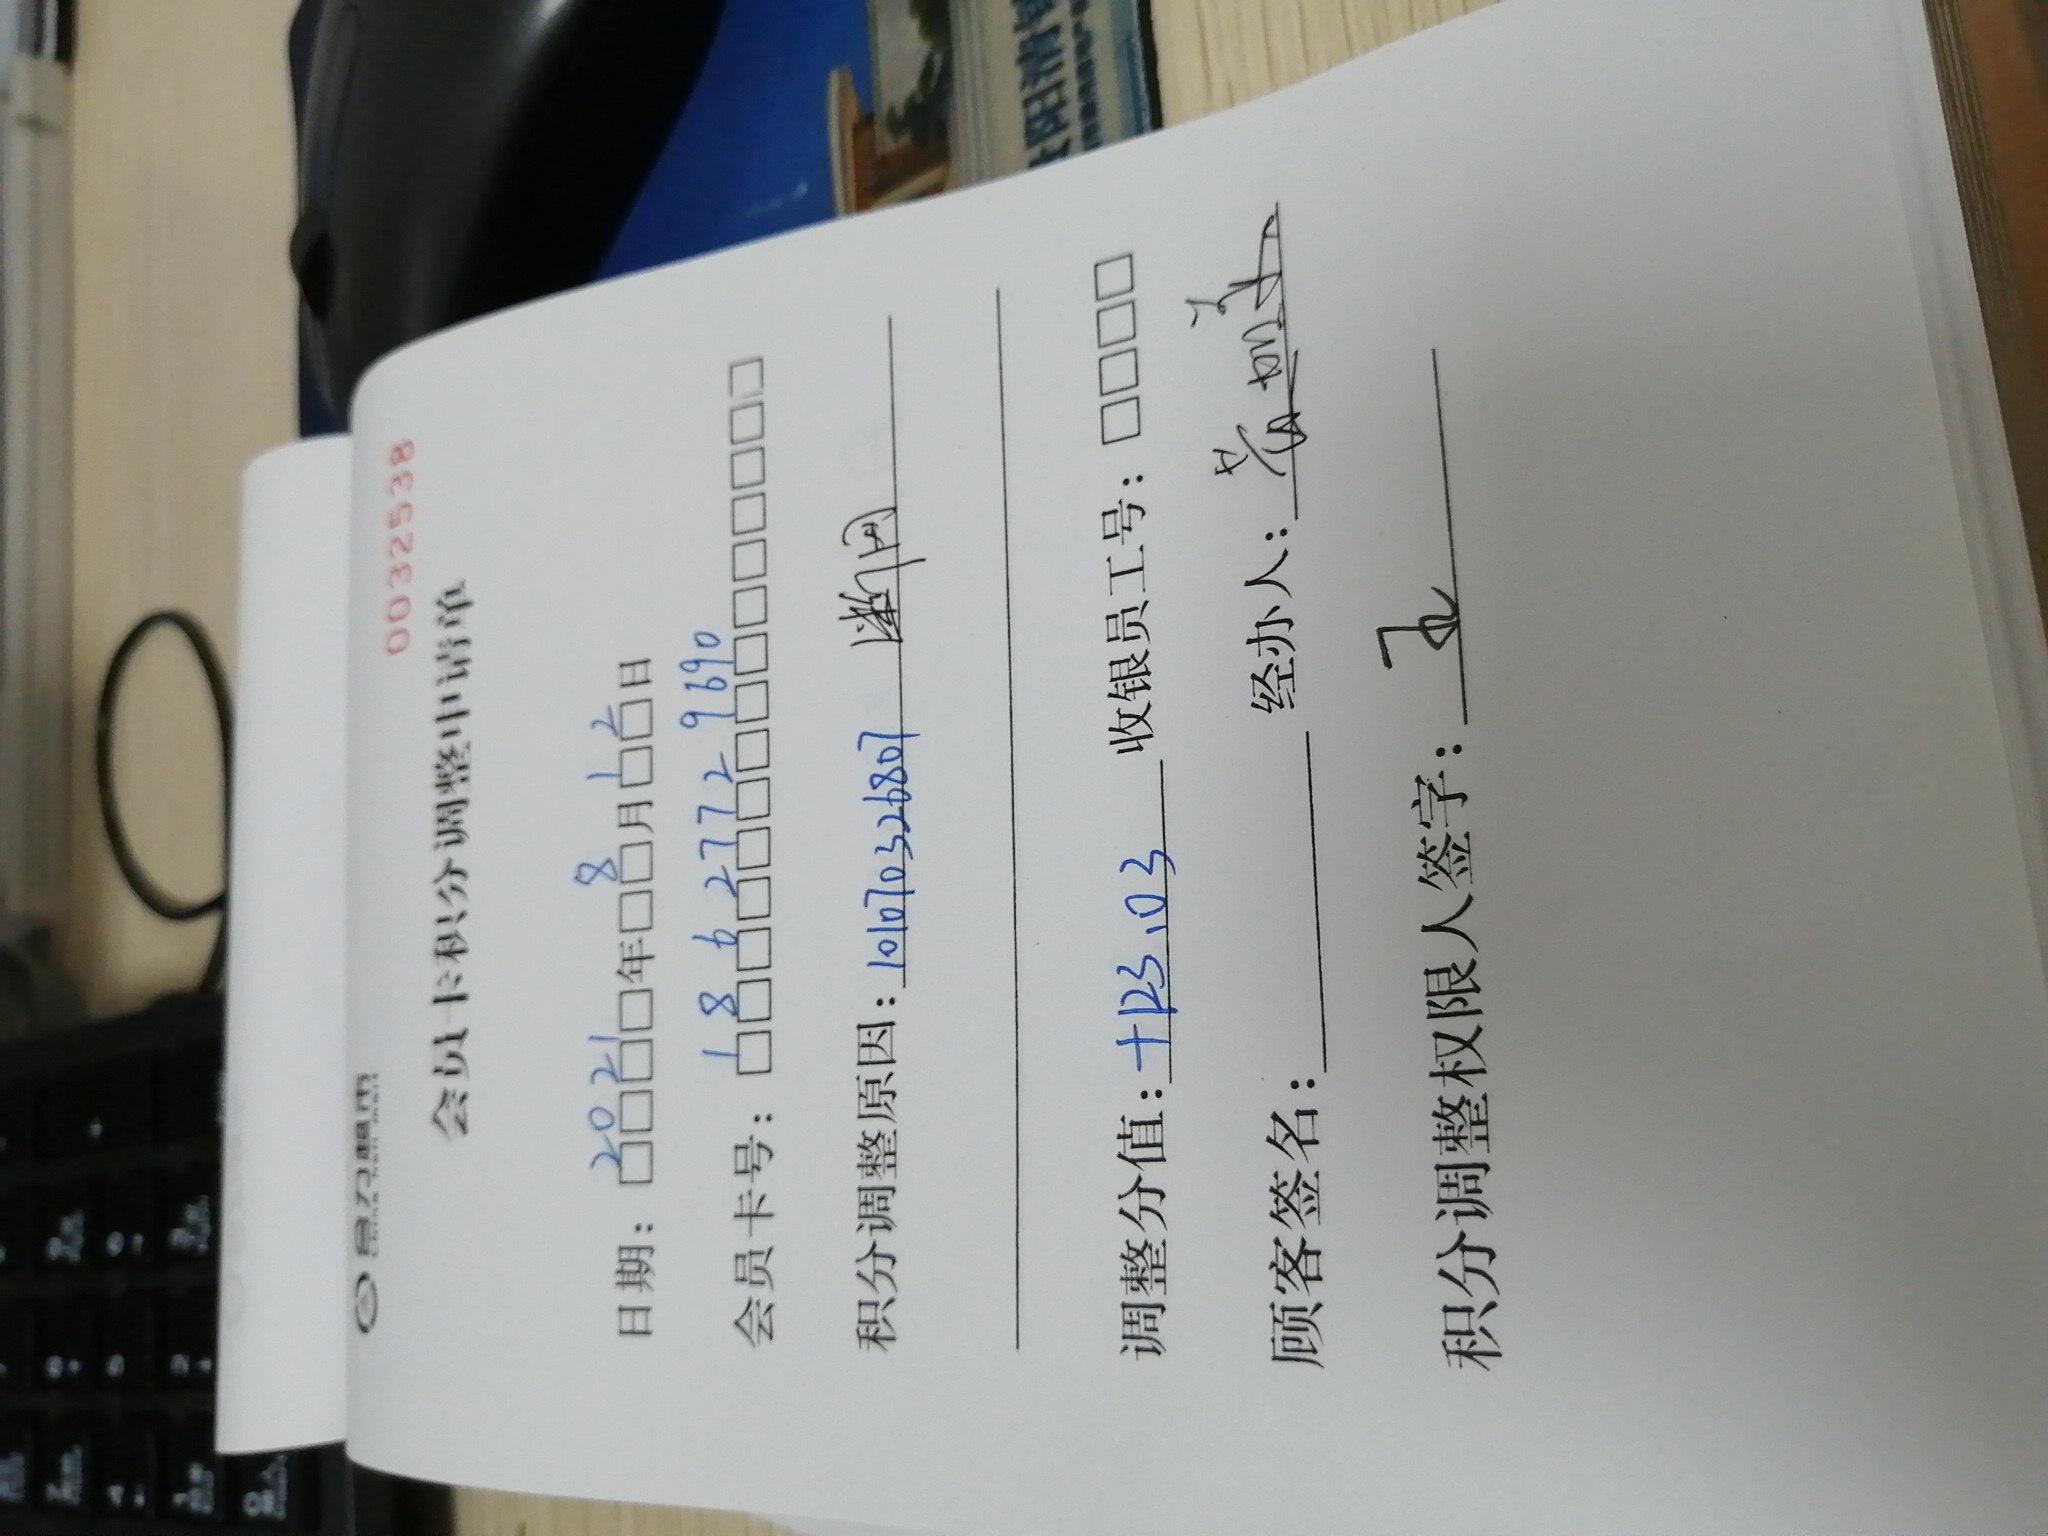 合力超市
00325538
会员卡积分调整申请单
日期：2021年8月12日
会员卡号：18627729690
积分调整原因：1010703326807 断网
调整分值：+123.03 收银员工号：
顾客签名： 经办人：
积分调整权限人签字：